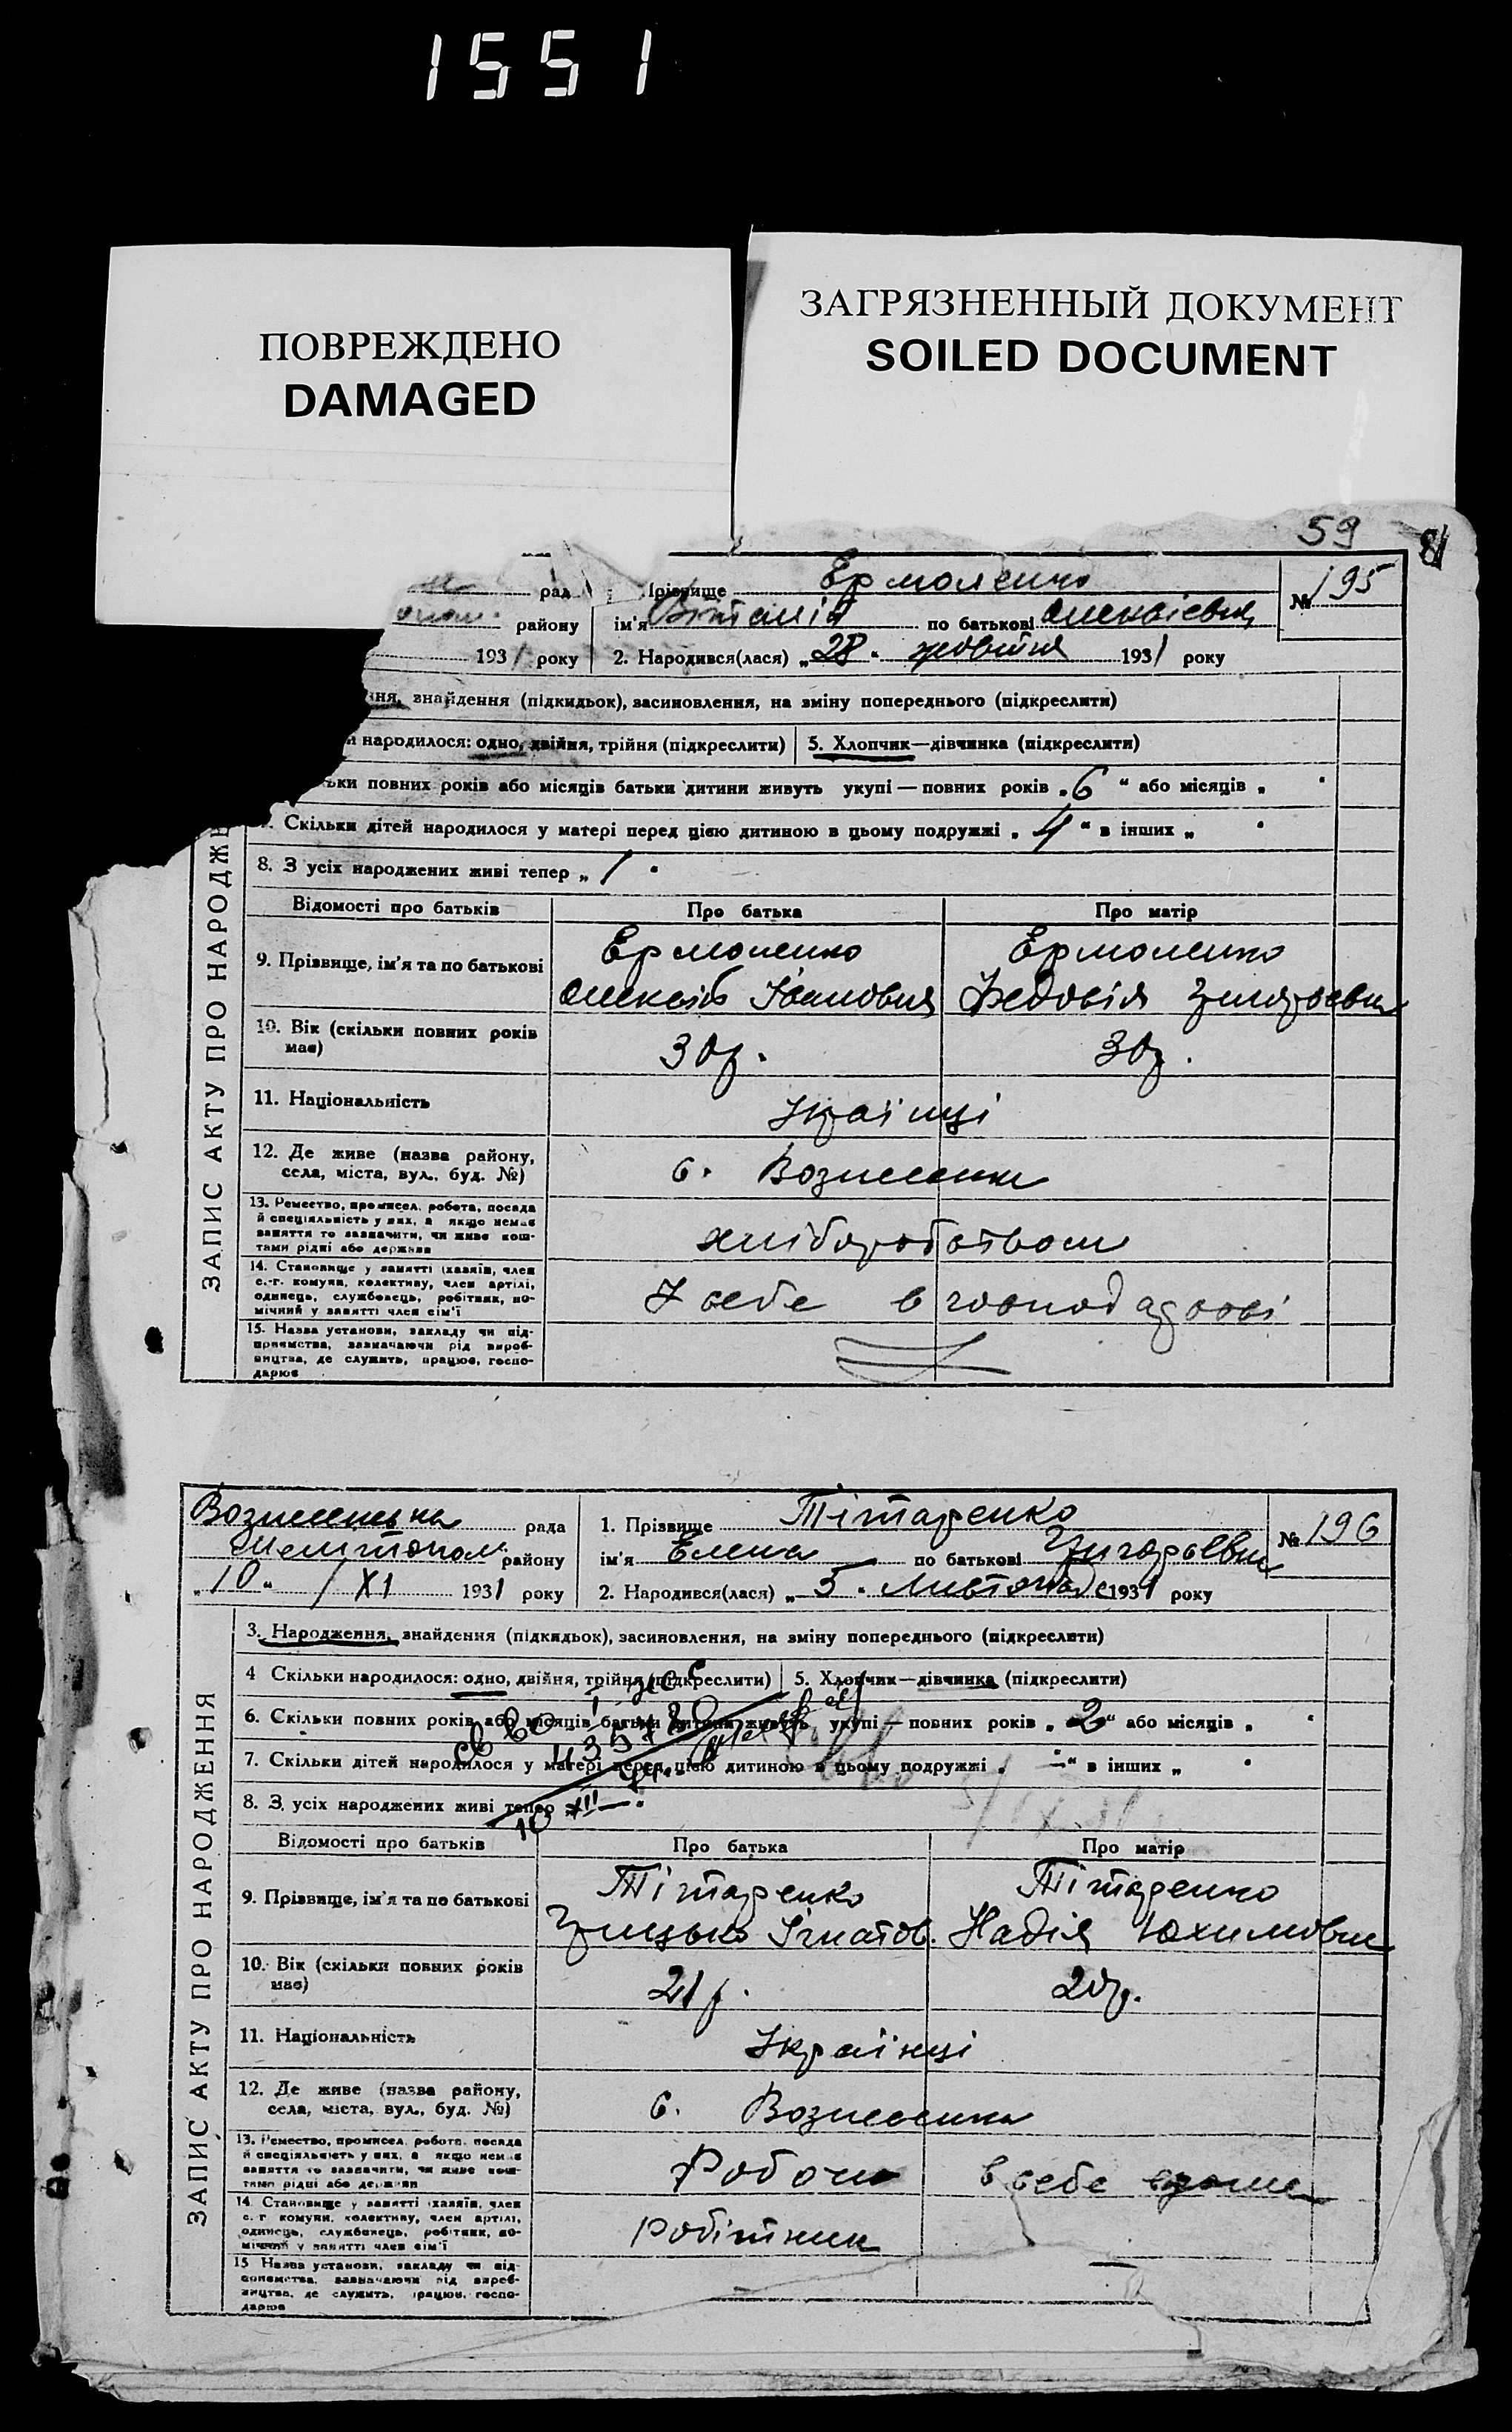 1551
ПОВРЕЖДЕНО
DAMAGED
ЗАГРЯЗНЕННЫЙ ДОКУМЕНТ
SOILED DOCUMENT
59
рад
Прізвище Ермоленко
№ 195
району
ім'я Віталій по батькові Олексієвич
1931 року
2. Народився(лася) „28" жовтня 1931 року
ння, знайдення (підкидьок), засиновлення, на зміну попереднього (підкреслити)
и народилося: одно, двійня, трійня (підкреслити) 5. Хлопчик—дівчинка (підкреслити)
ьки повних років або місяців батьки дитини живуть укупі — повних років „6" або місяців „ "
Скільки дітей народилося у матері перед цією дитиною в цьому подружжі „4" в інших „ "
8. З усіх народжених живі тепер „1"
ЗАПИС АКТУ ПРО НАРОДЖЕ
Відомості про батьків Про батька Про матір
9. Прізвище, ім'я та по батькові
Ермоленко Ермоленко
Олексій Івановия Федосія
10. Вік (скільки повних років має)
30р. 30р.
11. Національність
Українці
12. Де живе (назва району, села, міста, вул., буд. №)
с. Вознесенка
13. Ремество, промисел, робота, посада й спеціяльність у них, а якщо немає заняття то зазначити, чи живе коштами рідні або держави
хліборобством
14. Становище у занятті (хазяїн, член с.-г. комуни, колективу, член артілі, одинець, службовець, робітник, помічний у занятті член сім'ї
У себе в господарстві
15. Назва установи, закладу чи підприємства, зазначаючи рід виробництва, де служить, працює, господарює
Вознесенська рада
1. Прізвище Тітаренко
№ 196
Мелітопол. району
ім'я Елена по батькові Григорьевна
„10" / XI 1931 року
2. Народився(лася) „5" Листопаде 1931 року
3. Народження, знайдення (підкидьок), засиновлення, на зміну попереднього (підкреслити)
4 Скільки народилося: одно, двійня, трійня (підкреслити) 5. Хлопчик—дівчинка (підкреслити)
6. Скільки повних років або місяців батьки дитини живуть укупі — повних років „2" або місяців „ "
7. Скільки дітей народилося у матері перед цією дитиною в цьому подружжі „—" в інших „ "
8. З усіх народжених живі тепер „—"
ЗАПИС АКТУ ПРО НАРОДЖЕННЯ
Відомості про батьків Про батька Про матір
9. Прізвище, ім'я та по батькові
Тітаренко Тітаренко
Грицько Ігнатов. Надія Юхимовна
10. Вік (скільки повних років має)
21р. 20р.
11. Національність
Українці
12. Де живе (назва району, села, міста, вул., буд. №)
с. Вознесенка
13. Ремество, промисел, робота, посада й спеціяльність у них, а якщо немає заняття то зазначити, чи живе коштами рідні або держави
в себе
14. Становище у занятті (хазяїн, член с. г комуни, колективу, член артілі, одинець, службовець, робітник, помічний у занятті член сім'ї
Робітник
15 Назва установи, закладу чи підприємства, зазначаючи рід виробництва, де служить, працює, господарює